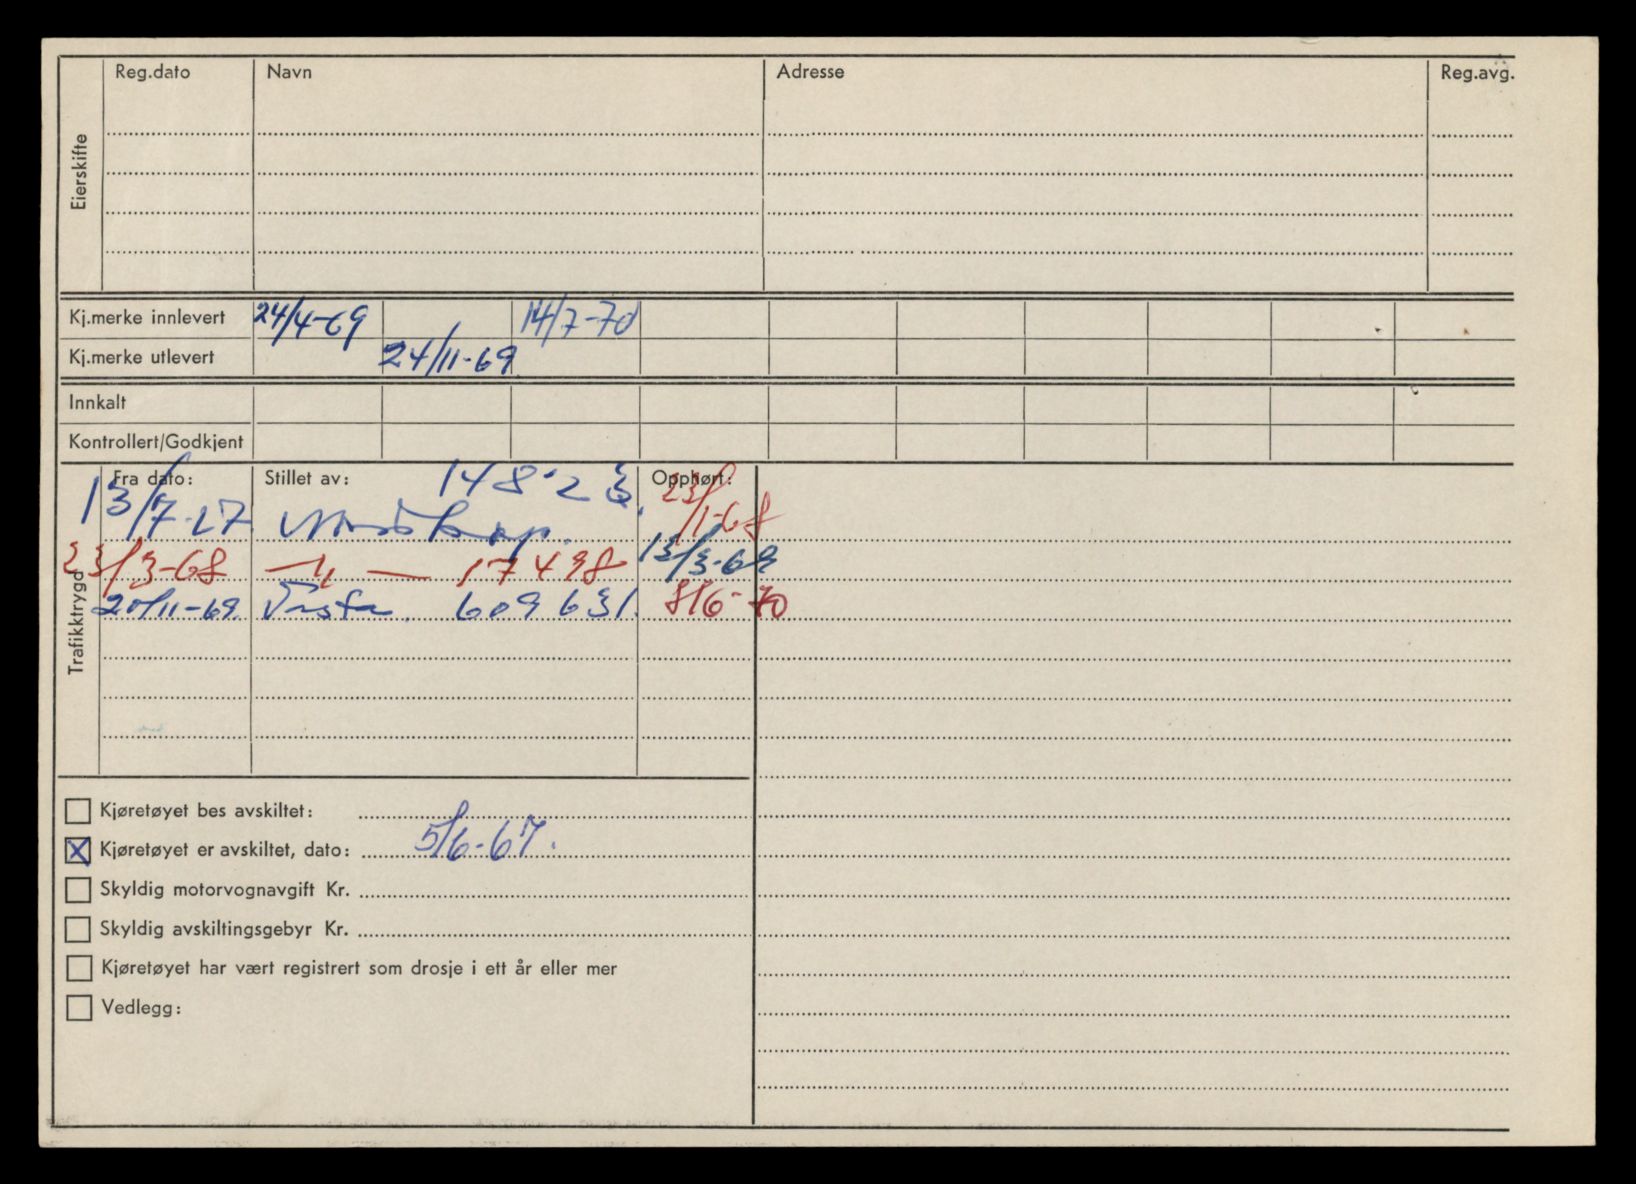 Reg.dato Navn Adresse Reg.avg.
Eierskifte
Kj.merke innlevert 24/4-69 14/7-70
Kj.merke utlevert 24/11-69
Innkalt
Kontrollert/Godkjent
Trafikktrygd
Fra dato: Stillet av: 148 23 Opphørt: 23/1-68
13/7-
23/3-68 — " — 17498 13/3-69
20/11-69. 609631. 8/6-70
Kjøretøyet bes avskiltet:
X Kjøretøyet er avskiltet, dato: 5/6-67.
Skyldig motorvognavgift Kr.
Skyldig avskiltingsgebyr Kr.
Kjøretøyet har vært registrert som drosje i ett år eller mer
Vedlegg: